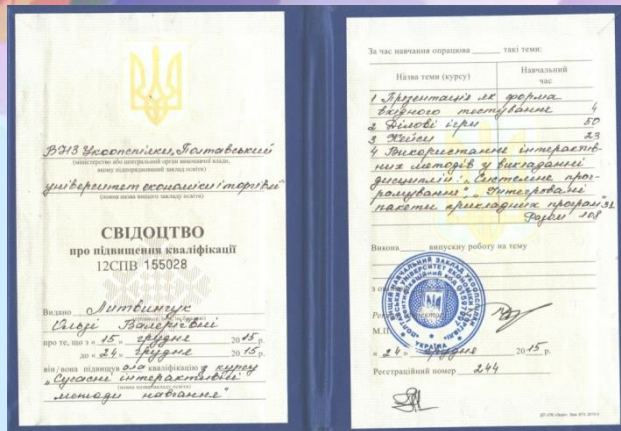 ВНЗ Укоопспілки, Полтавський
(міністерство або центральний орган виконавчої влади,
якому підпорядкований заклад освіти)
університет економіки і торгівлі
(повна назва вищого закладу освіти)
СВІДОЦТВО
про підвищення кваліфікації
12СПВ 155028
Видано Литвинчук
Ользі Валеріївні
про те, що з « 15 » грудня 2015 р.
до « 24 » грудня 2015 р.
він/вона підвищув ала кваліфікацію з курсу
„Сучасні інтерактивні
методи навчання"
За час навчання опрацюва ______ такі теми:
Назва теми (курсу) Навчальний час
1 Презентація як форма
вхідного тестування 4
2 Ділові ігри 50
3 Кейси 23
4 Використання інтерактив-
них методів у викладанні
дисциплін „Системне прог-
рамування", „Інтегровані
пакети прикладних програм" 31
Разом 108
Викона ______ випускну роботу на тему
М.П.
« 24 » грудня 2015 р.
Реєстраційний номер 244